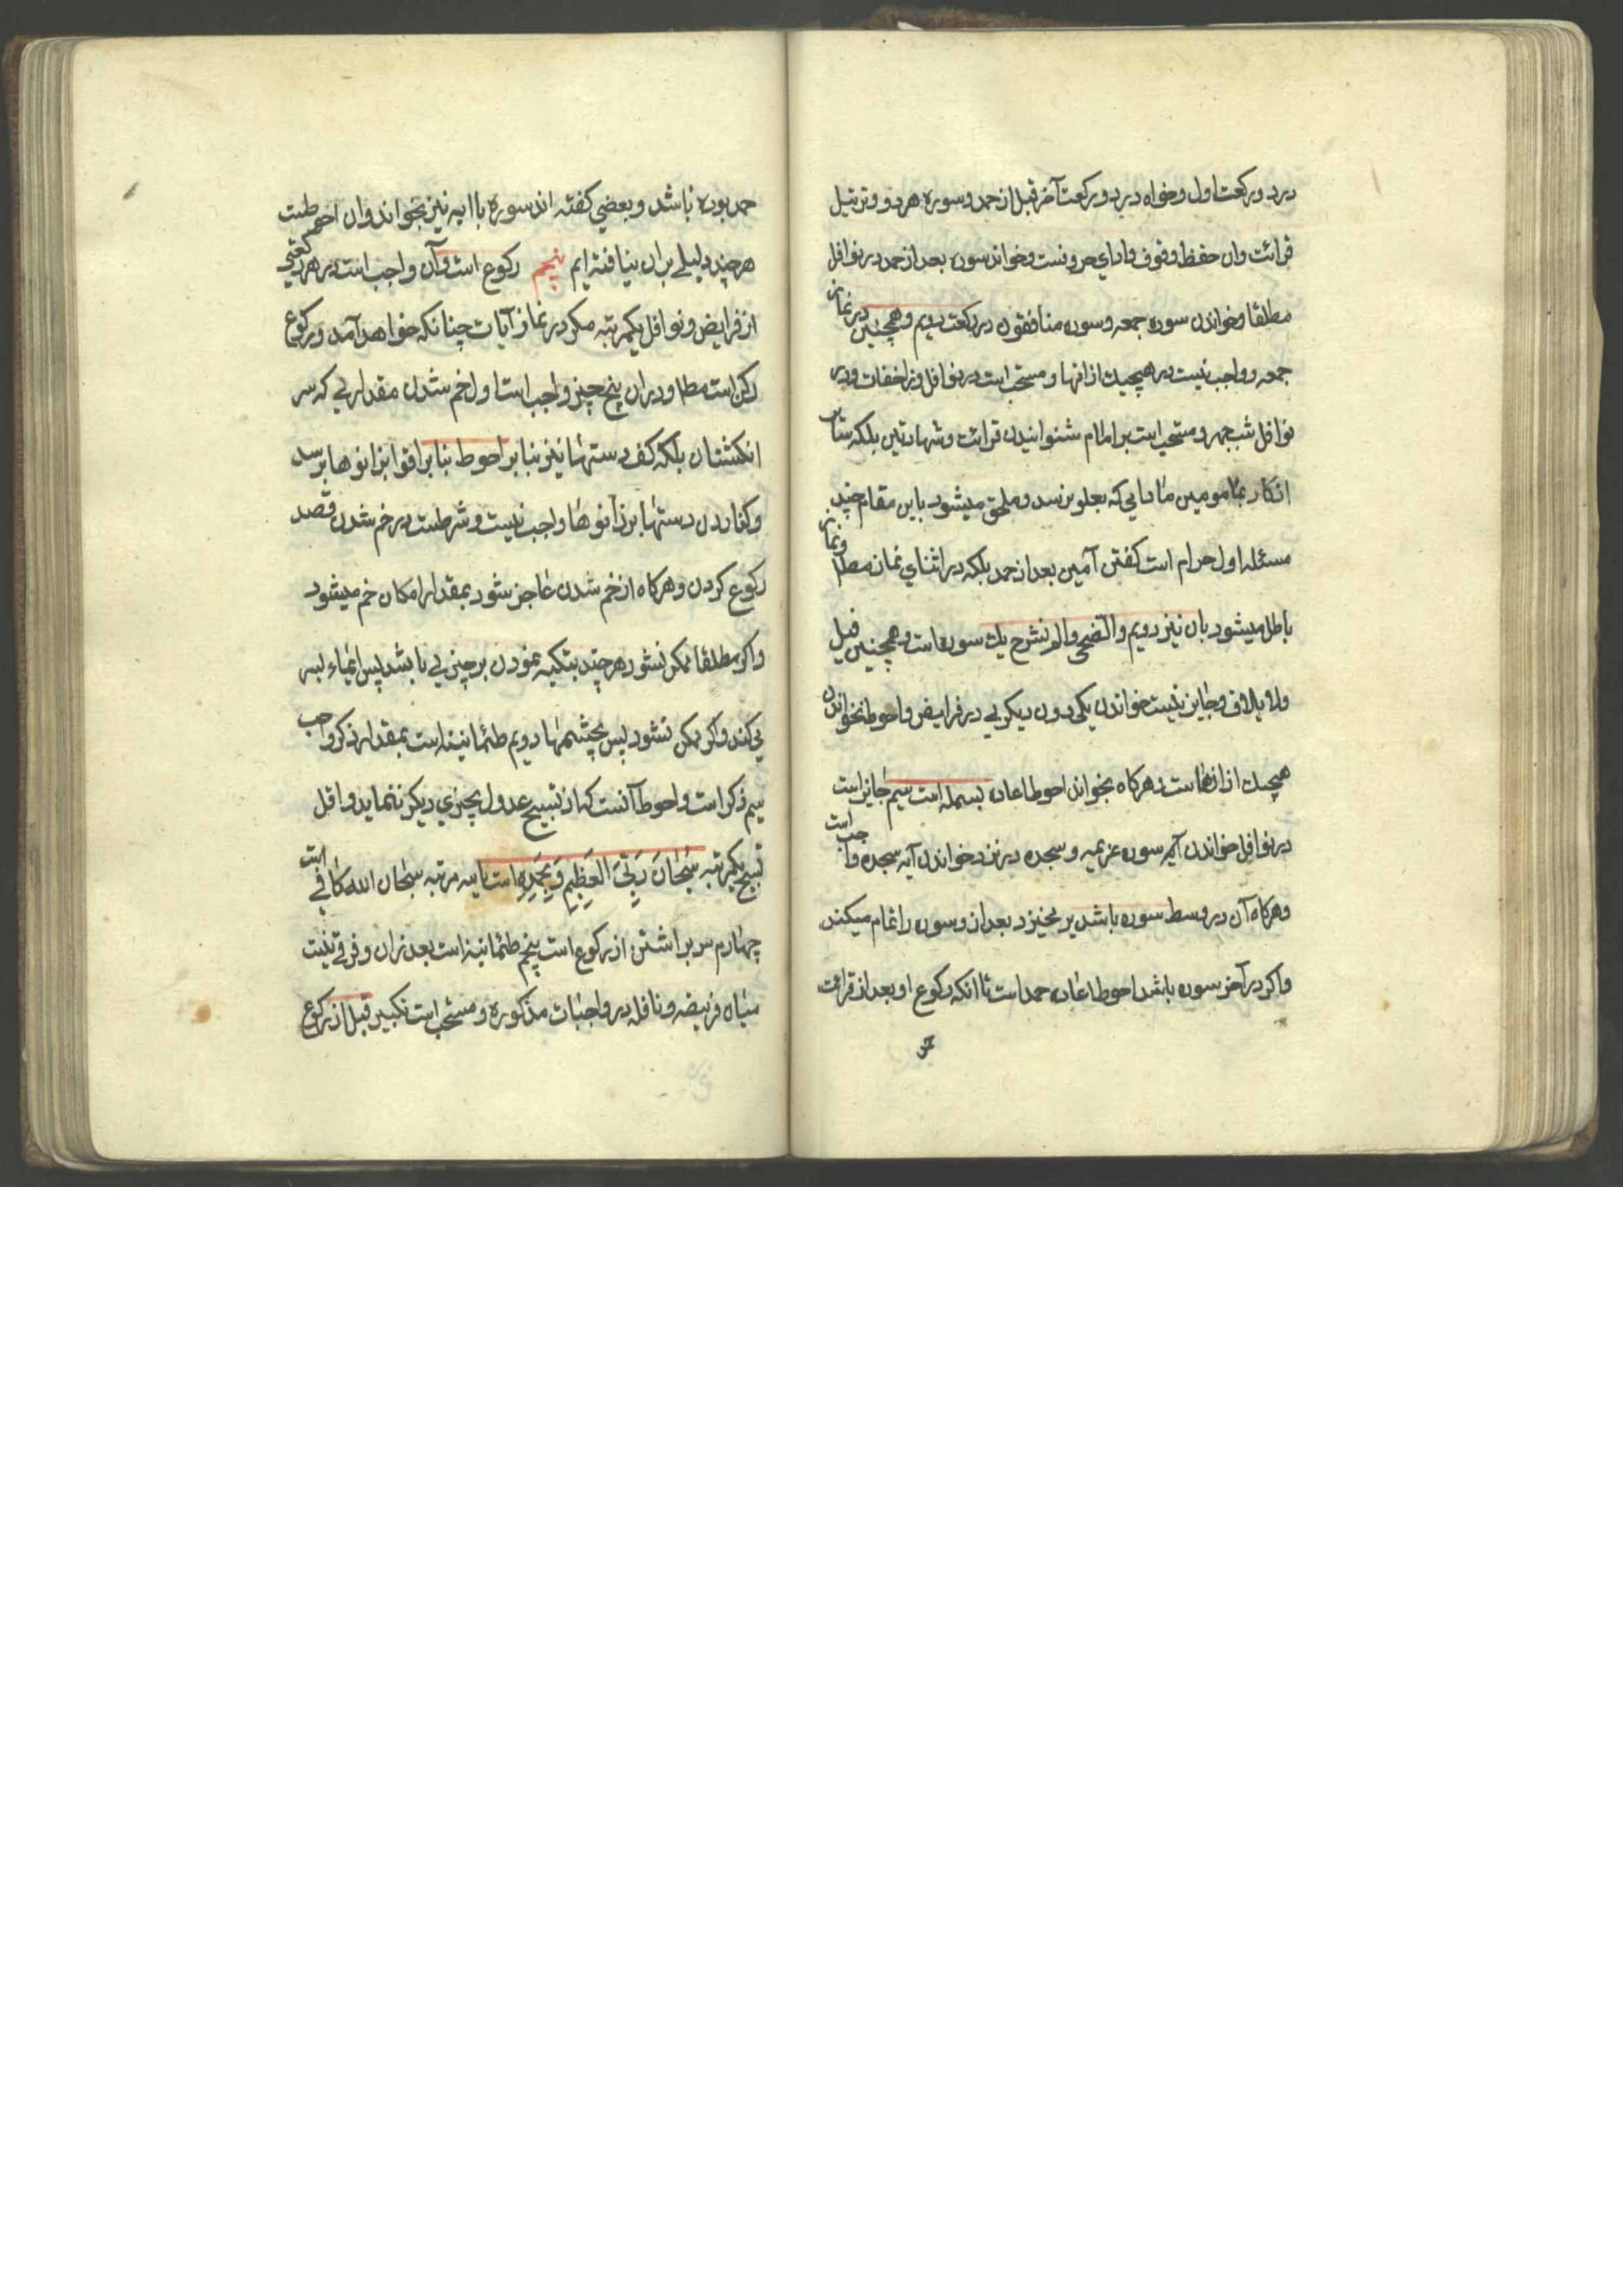 در دو رکعت اول و خواه در دو رکعت آخر قبل از حمد و سوره هر دو و ترتیل
قرائت وان حفظ وقوف و ادای حروفست و خواندن سوره بعد از حمد در نوافل
مطلقا و خواندن سوره جمعه و سوره منافقون در رکعت دویم و همچنین در نماز
جمعه و واجب نیست در هیچیك از انها و مستحب است در نوافل روز اخفات و در
نوافل شب جهر و مستحب است بر امام شنوانیدن قرائت و شهادتین بلکه سایر
اذکار بمامومین مادامی که بعلو نرسد و ملحق میشود باین مقام چند
مسئله اول حرام است کفتن آمین بعد از حمد بلکه در اثنای نماز مطلقا و نماز
باطل میشود بان نیز دویم والضحی و الم نشرح یك سوره است و همچنین فیل
ولایلاف و جایز نیست خواندن یکی دون دیکری در فرایض و احوط نخواندن
هیچیك از انهاست و هرکاه بخواند احوط اعاده بسمله است سیم جایز است
در نوافل خواندن آیه سوره عزیمه و سجده در نزد خواندن آیه سجده واجب است
و هرکاه آن در وسط سوره باشد بر میخیزد بعد از و سوره را تمام میکند
و اکر در آخر سوره باشد احوط اعاده حمد است تا انکه رکوع او بعد از قرائت
حمد
حمد بوده باشد و بعضی کفته اند سوره یا ایه نیز بخواند وان احوطست
هر چند دلیلی بران نیافته ایم پنجم رکوع است و آن واجب است در هر رکعتی
از فرایض و نوافل یکمرتبه مکر در نماز آیات چنانکه خواهد آمد و رکوع
رکن است مطلقا و در ان پنج چیز واجب است اول خم شدن مقداری که سر
انکشتان بلکه کف دستها نیز بنا بر احوط بنا بر اقوا بزانوها برسد
و کذاردن دستها بر زانوها واجب نیست و شرطست در خم شدن قصد
رکوع کردن و هرکاه از خم شدن عاجز شود بمقدار امکان خم میشود
و اکر مطلقا ممکن نشود هر چند بتکیه نمودن بر چیزی باشد پس ایماء بسر
می کند و اکر ممکن نشود پس بچشمها دویم طمانینه است بمقدار ذکر واجب
سیم ذکر است و احوط آنست که از تسبیح عدول بچیزی دیکر ننماید و اقل
تسبیح یکمرتبه سُبْحَانَ رَبِّیَ الْعَظِیمِ وَ بِحَمْدِهِ است یا سه مرتبه سبحان الله کافی است
چهارم سر براشتن از رکوع است پنجم طمانینه است بعد از ان و فرقی نیست
میان فریضه و نافله در واجبات مذکوره و مستحب است تکبیر قبل از رکوع